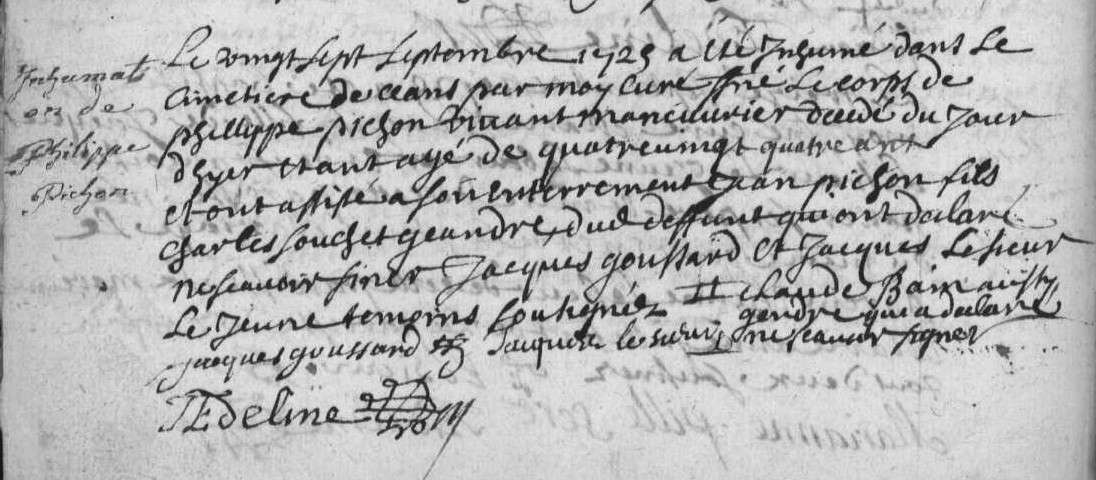 Inhumati
on de
Philippe
Pichon
Le vingt sept septembre 1725 a été Inhumé dans Le
Cimetiere de ceans par moy Curé ssné Le corps de
phillippe pichon vivant maneuvrier decedé du Jour
d'hyer etant agé de quatrevingt quatre ans
et ont assisté a son enterrement Jean pichon fils
charles souchet geandre, dud deffunt qui ont declaré
ne scavoir siner Jacques goussard Et Jacques Lesieur
Le Jeune temoins soubsignéz # claude Bain aussy
gendre qui a declaré
ne scavoir signer
jacques goussard Jacques le sieur
JEdeline